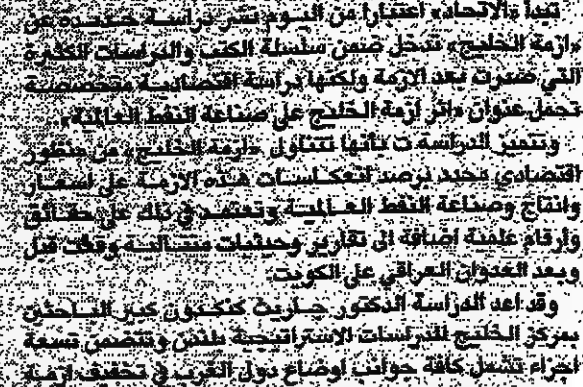 تبدأ «الاتحاد» اعتبارا من اليوم نشر دراسة جديدة عن
«ازمة الخليج» تدخل ضمن سلسلة الكتب والدراسات الكثيرة
التي صدرت بعد الازمة ولكنها دراسة اقتصادية متخصصة
تحمل عنوان «اثر ازمة الخليج على صناعة النفط العالمية».
وتتميز الدراسة ت بأنها تتناول «ازمة الخليج» من منظور
اقتصادي محدد يرصد انعكاسات هذه الازمة على اسعار
وانتاج وصناعة النفط العالمية وتعتمد في ذلك على حقائق
وأرقام علمية اضافة الى تقارير وحيثيات متتالية وقعت قبل
وبعد العدوان العراقي على الكويت.
وقد اعد الدراسة الدكتور جاريت كبير الباحثين
بمركز الخليج للدراسات الاستراتيجية بلندن وتتضمن تسعة
اجزاء تشمل كافة جوانب اوضاع دول الغرب في تخفيف ازمة